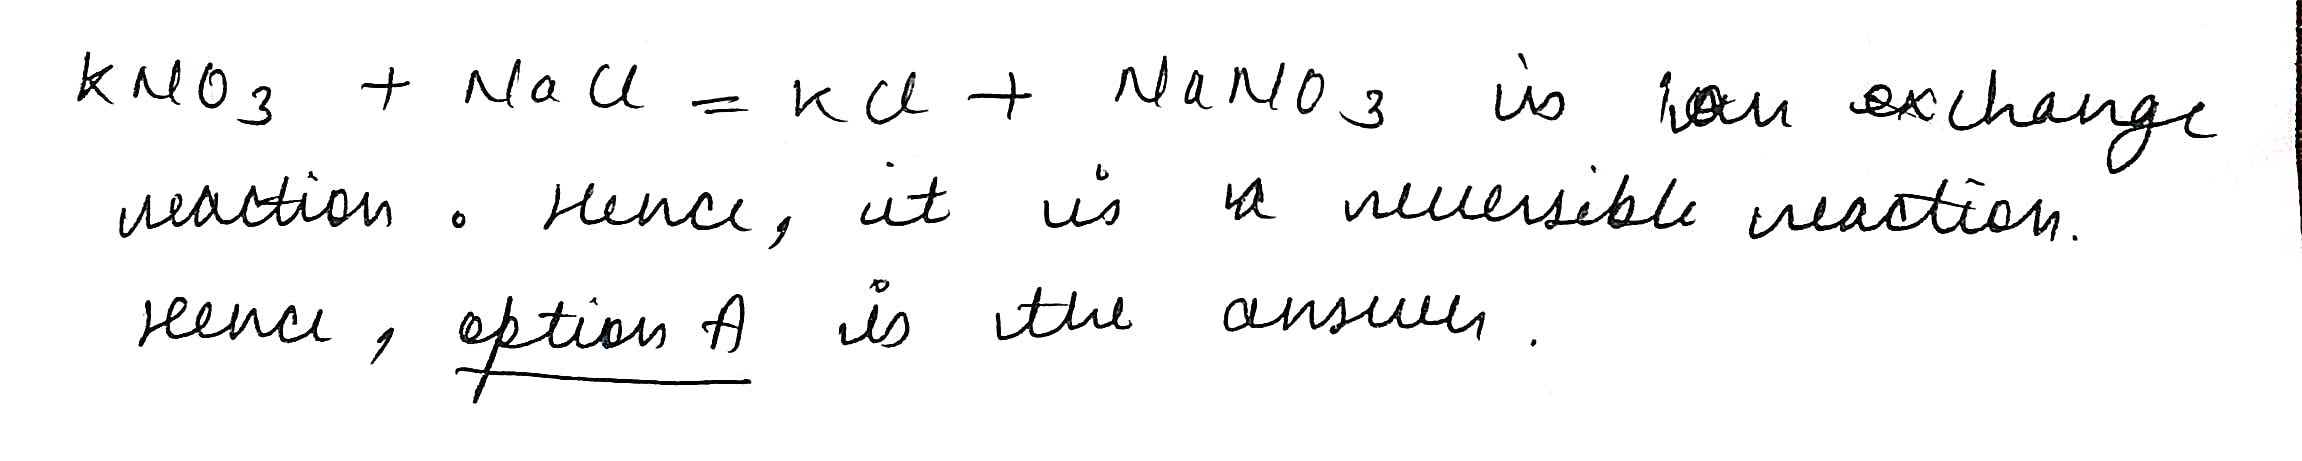 KNO3 + NaCl = KCl + NaNO3 is ion exchange
reaction. Hence, it is a reversible reaction.
Hence, option A is the answer.